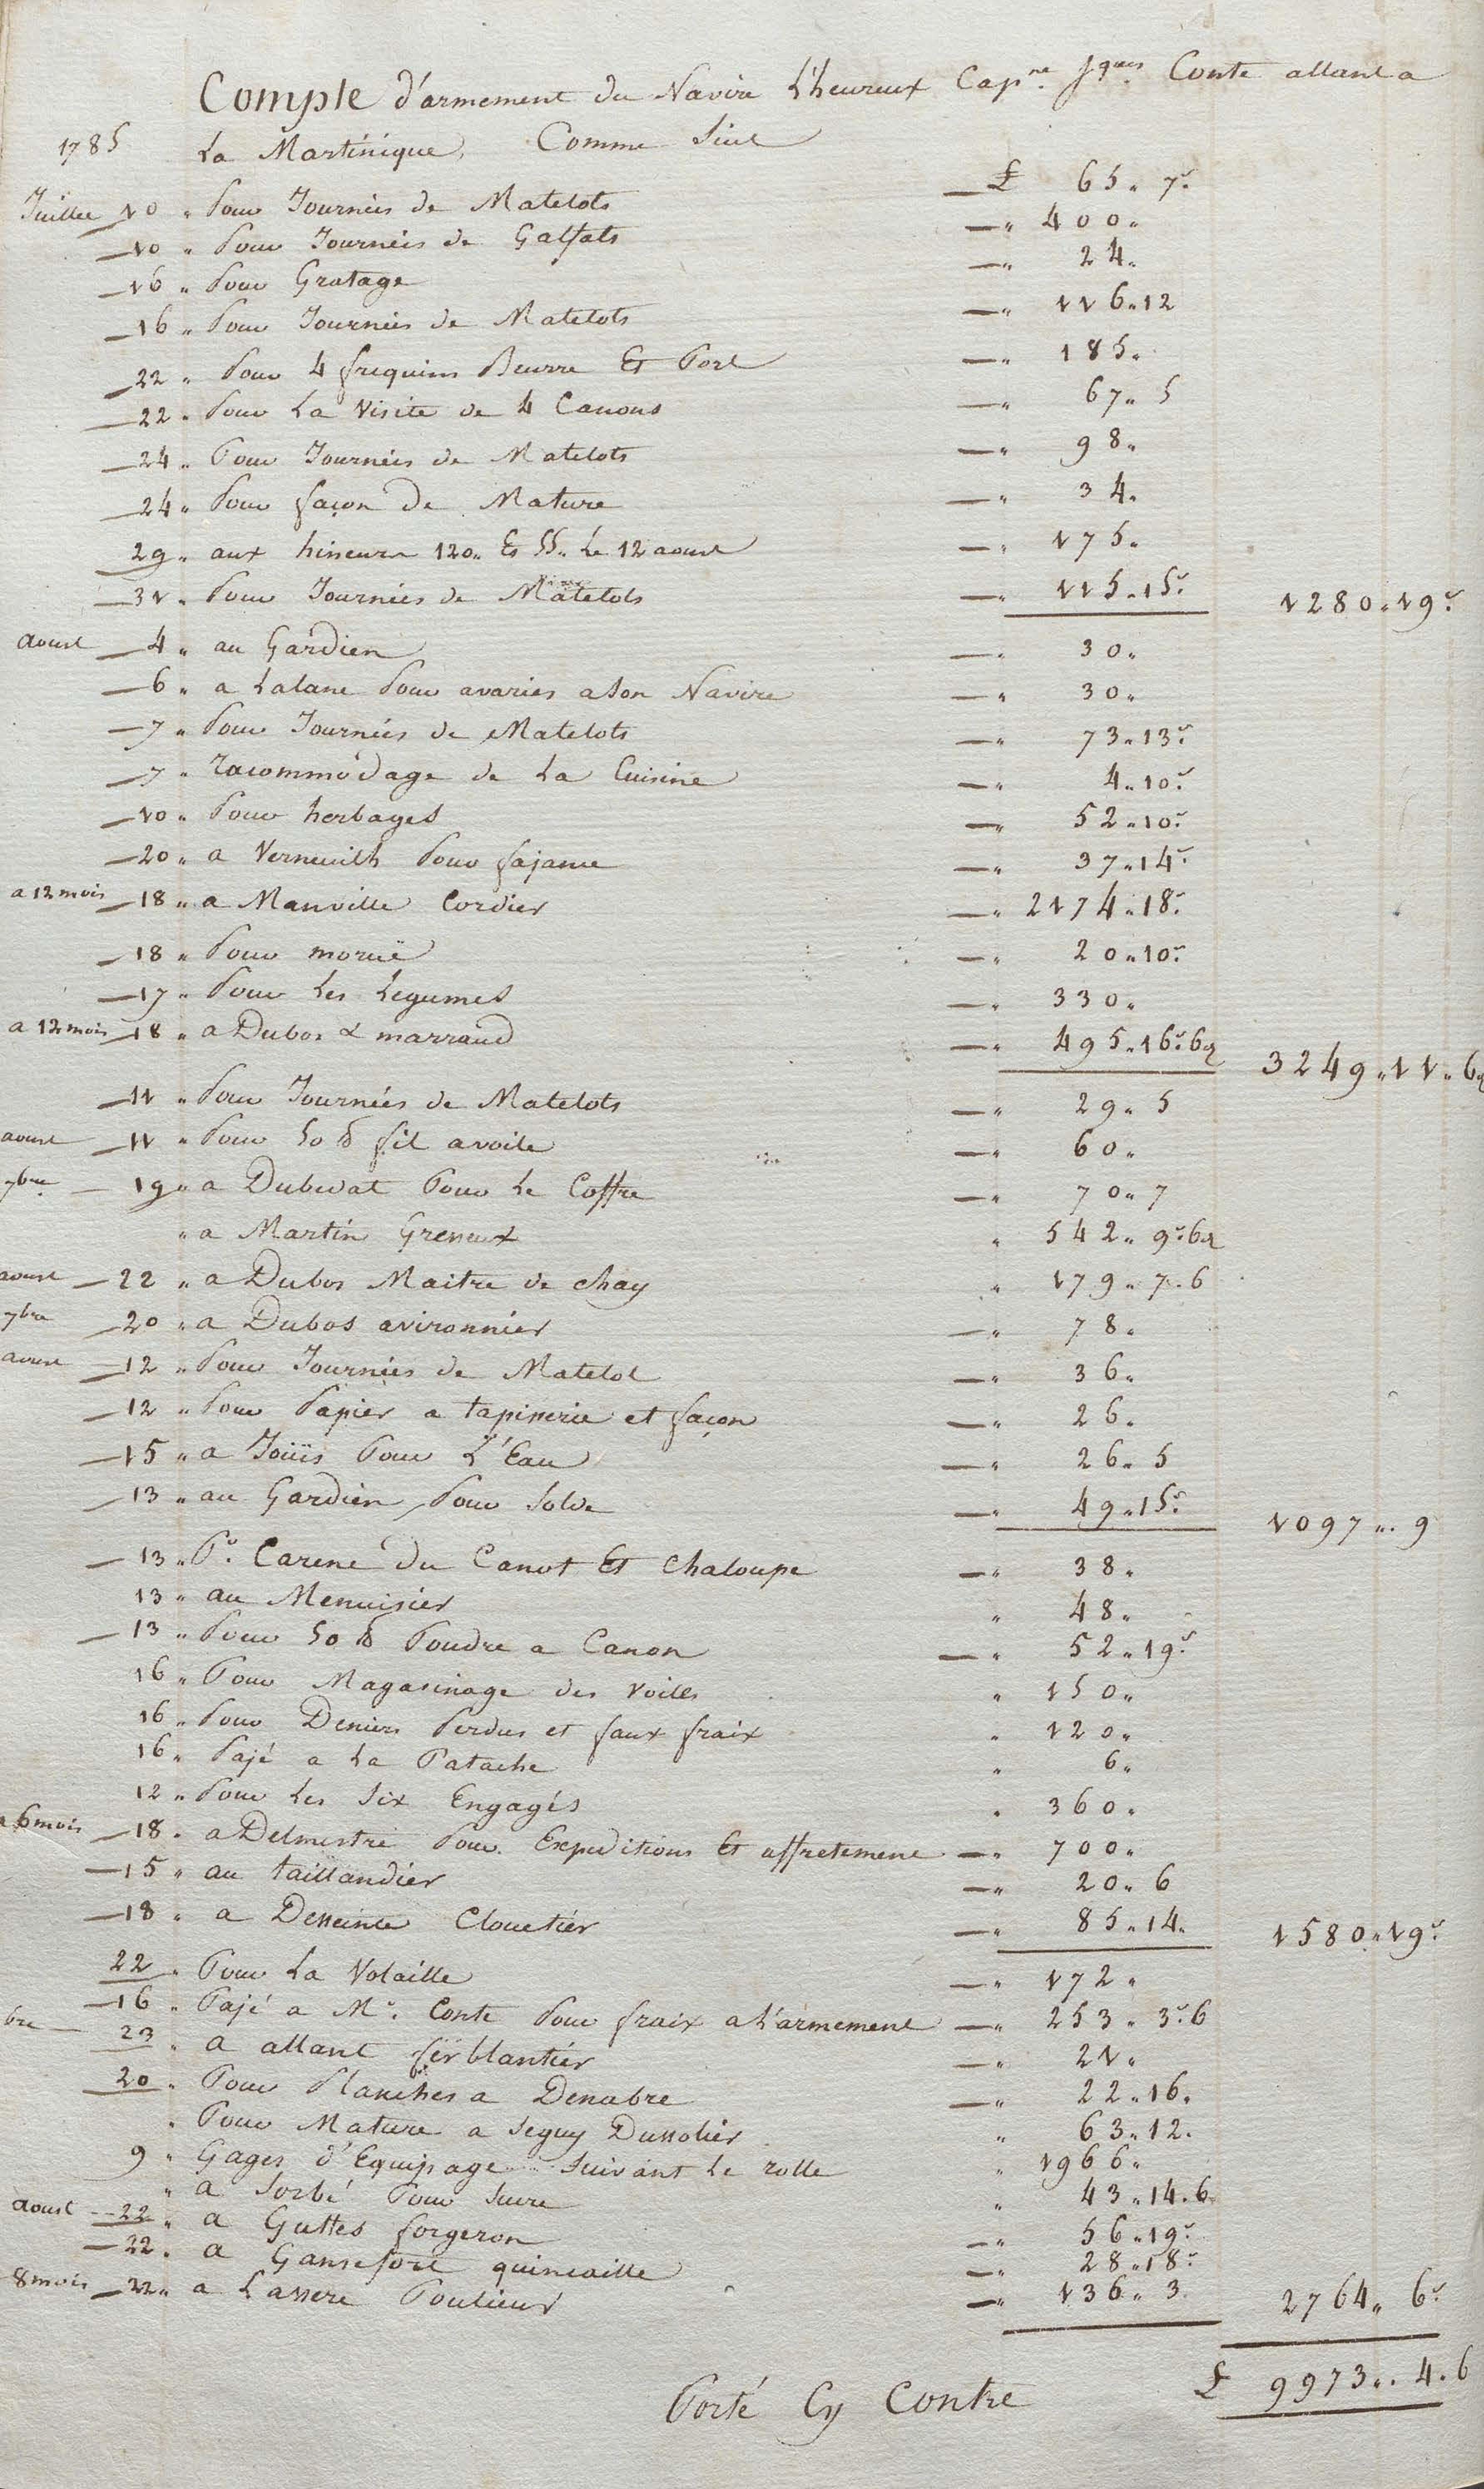 Compte d'armement du Navire L'heureux Cap.ne Jques. Conte allant a
1785 La Martinique, Comme Suit
Juillet 10 " Pour Journées de Matelots £ 65 " 7s.
10 " Pour Journées de Galfats " 400 "
16 " Pour Gratage " 24 "
16 " Pour Journées de Matelots " 116 " 12
22 " Pour 4 frequins Beurre Et Port " 185 "
22 " Pour La Visite de 4 Canons " 67 " 5
24 " Pour Journées de Matelots " 98 "
24 " Pour façon De Mature " 34 "
29 " aux hiseurs 120 " Et 55 " Le 12 aoust " 175 "
31 " Pour Journées de Matelots " 115 " 15s. 1280 " 19s.
aoust 4 " au Gardien " 30 "
6 " a Lalane Pour avaries a Son Navire " 30 "
7 " Pour Journées de Matelots " 73 " 13s.
7 " Racommodage de La Cuisine " 4 " 10s.
10 " Pour herbages " 52 " 10s.
20 " a Verneuilh Pour fajance " 37 " 14s.
a 12 mois 18 " a Manville Cordier " 2174 " 18s.
18 " Pour moruë " 20 " 10s.
17 " Pour Les Legumes " 330 "
a 12 mois 18 " a Dubos & marraud " 495 " 16s. 6d 3249 " 11 " 6d
11 " Pour Journées de Matelots " 29 " 5
aoust 11 " Pour 50 lb fil a voile " 60 "
7bre 19 " a Dubedat Pour Le Coffre " 70 " 7
" a Martin Greneux " 542 " 9s. 6d
aoust 22 " a Dubos Maitre de chay " 179 " 7 . 6
7bre 20 " a Dubos avironnier " 78 "
aoust 12 " Pour Journées de Matelot " 36 "
12 " Pour Papier a tapisserie et façon " 26 "
15 " a Joüis Pour L'Eau " 26 " 5
13 " au Gardien, Pour Solde " 49 " 15s. 1097 " . 9
13 " Pr. Carene du Canot Et Chaloupe " 38 "
13 " au Menuisier " 48 "
13 " Pour 50 lb Poudre a Canon " 52 " 19s.
16 " Pour Magasinage des Voiles " 150 "
16 " Pour Deniers Perdus et faux fraix " 120 "
16 " Pajé a La Patache " 6 "
12 " Pour Les Six Engagés " 360 "
a 6 mois 18 " a Delmestre Pour Expeditions Et affretement " 700 "
15 " au taillandier " 20 " 6
18 " a Desseinte Cloutier " 85 " 14 " 1580 " 19s.
22 " Pour La Volaille " 172 "
16 " Pajé a Mr. Conte Pour fraix a L'armement " 253 " 3s. 6
bre 23 " a allant ferblantier " 21 "
20 " Pour Planches a Denabre " 22 " 16 "
" Pour Mature a Seguy Dussolier " 63 " 12 .
9 " Gages d'Equipage Suivant Le rolle " 1966 "
" a Sorbé Pour Sucre " 43 " 14 . 6
aoust 22 " a Guttes forgeron " 56 " 19s.
22 " a Gansefort quincaille " 28 " 18s.
8 mois 22 " a Lassere Poulieur " 136 " 3 . 2764 " 6s.
£ 9973 " . 4 . 6
Porté Cy Contre